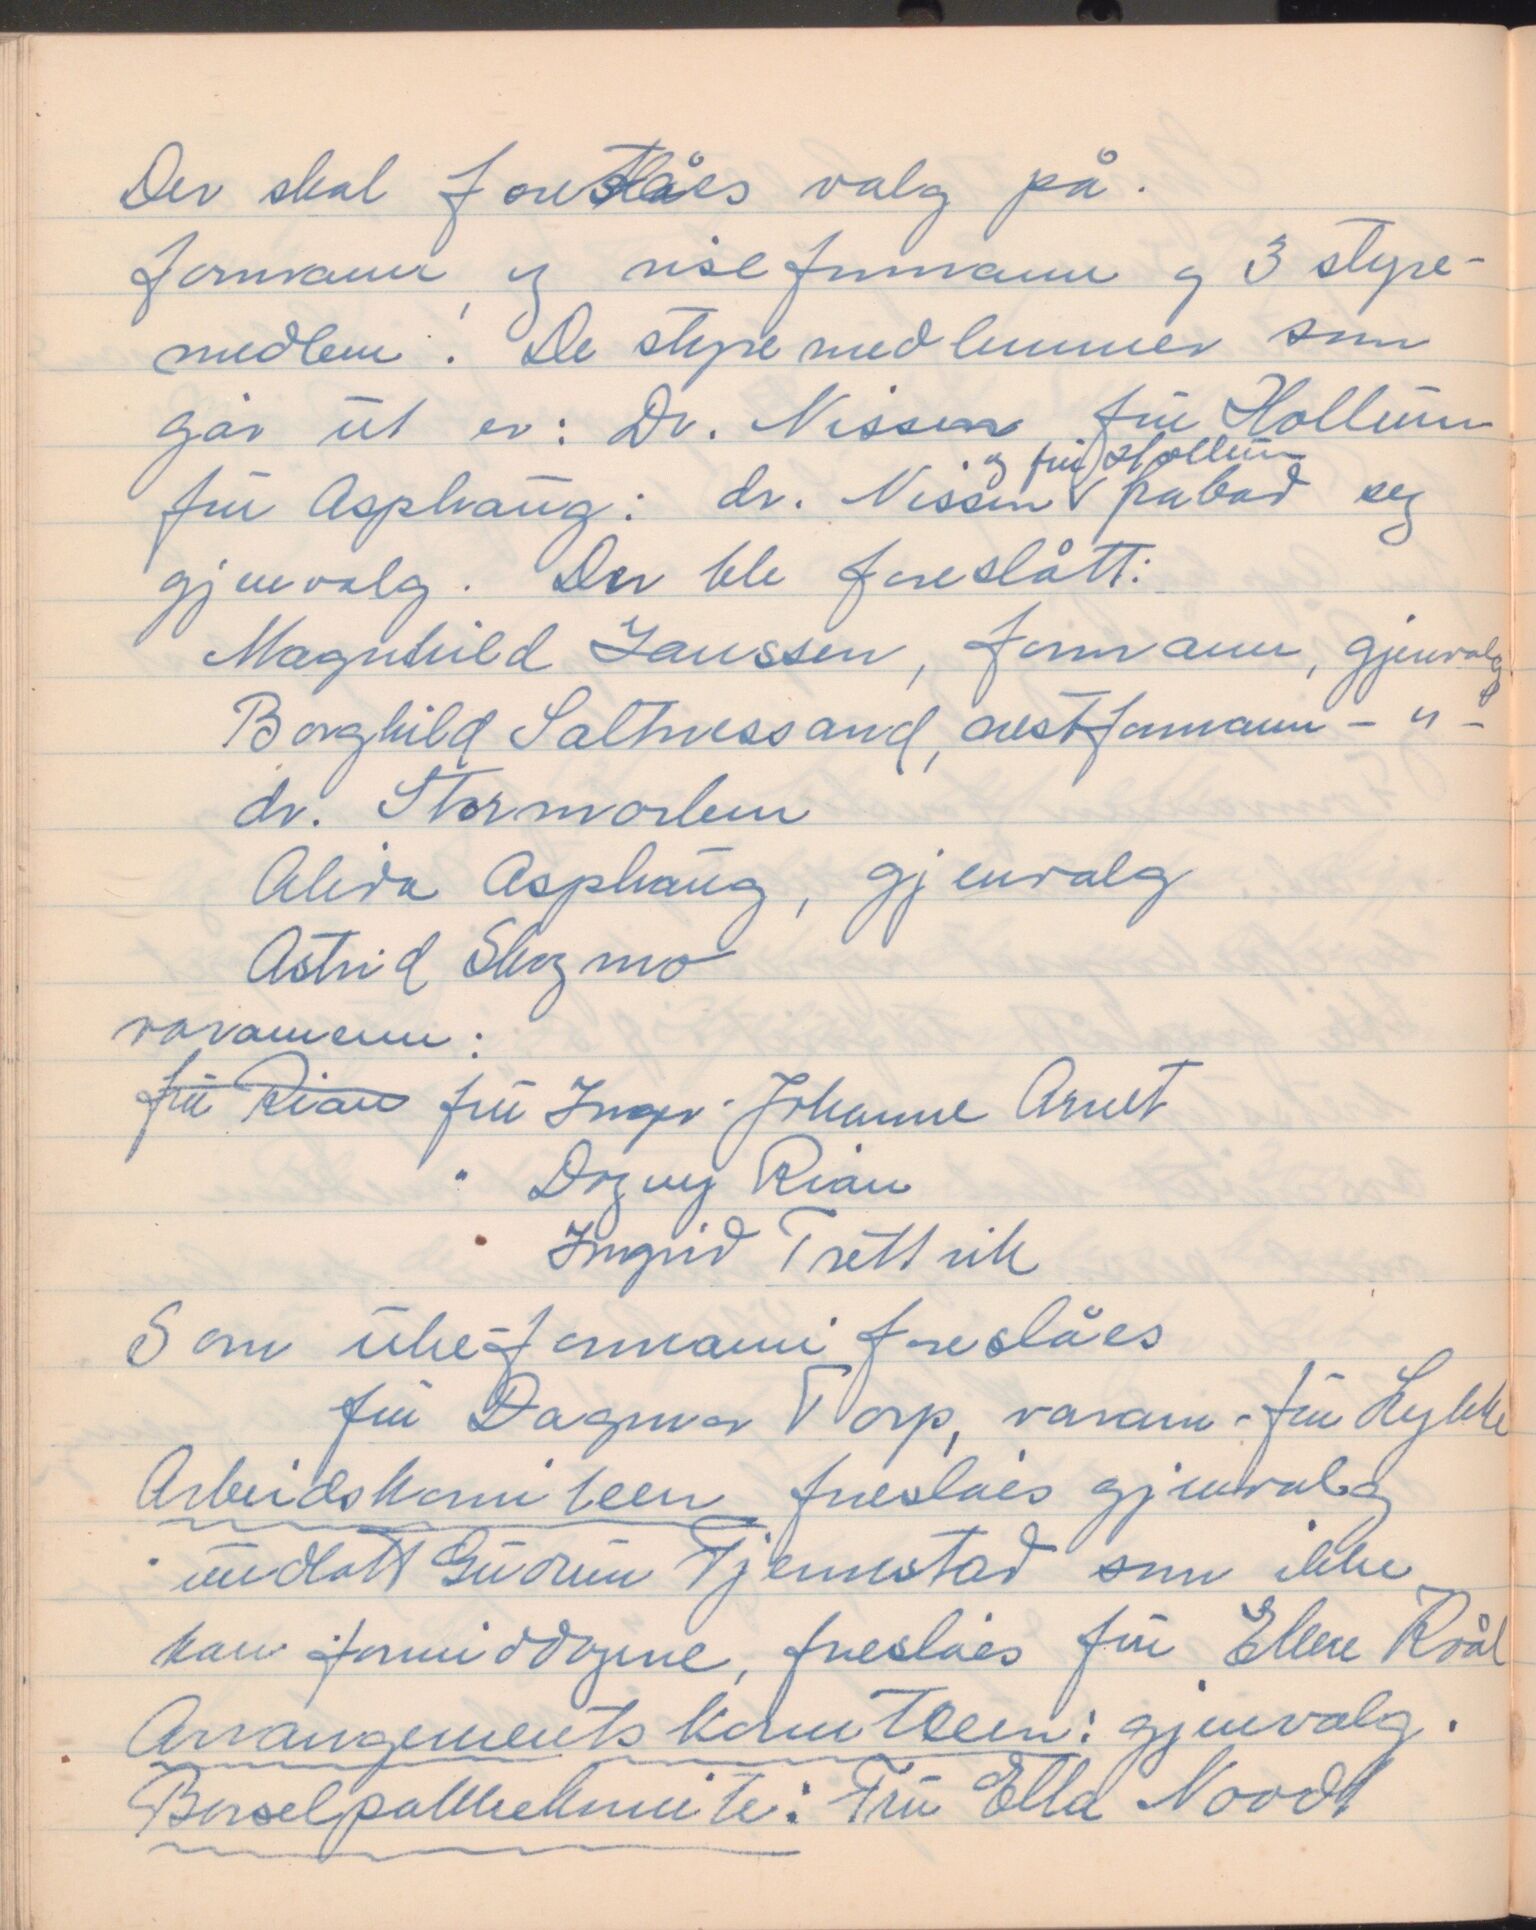 Der skal foreslåes valg på.
formann, og vise formann og 3 styre-
medlem. De styremedlemmer som
går ut er: Dr. Nissen fru Hollum
fru Asphaug: dr. Nissen og fru Hollum frabad seg
gjenvalg. Der ble foreslått:
Magnhild Janssen, formann, gjenvalg.
Borghild Saltnessand, nestformann - " -
dr. Stormorken
Alida Asphaug, gjenvalg
Astrid Skogmo
varamenn:
fru Rian fru Inger-Johanne Arnet
" Dagny Rian
" Ingrid Trettvik
Som uke-formann foreslåes
fru Dagmar Torp, varam. fru Lykke
Arbeidskomiteen foreslåes gjenvalg
undtatt Gudrun Tjernstad som ikke
kan formiddagene, foreslåes fru Ellen Kvål
Arrangementskomiteen: gjenvalg.
Barselpakkekomite: Fru Ella Noodt